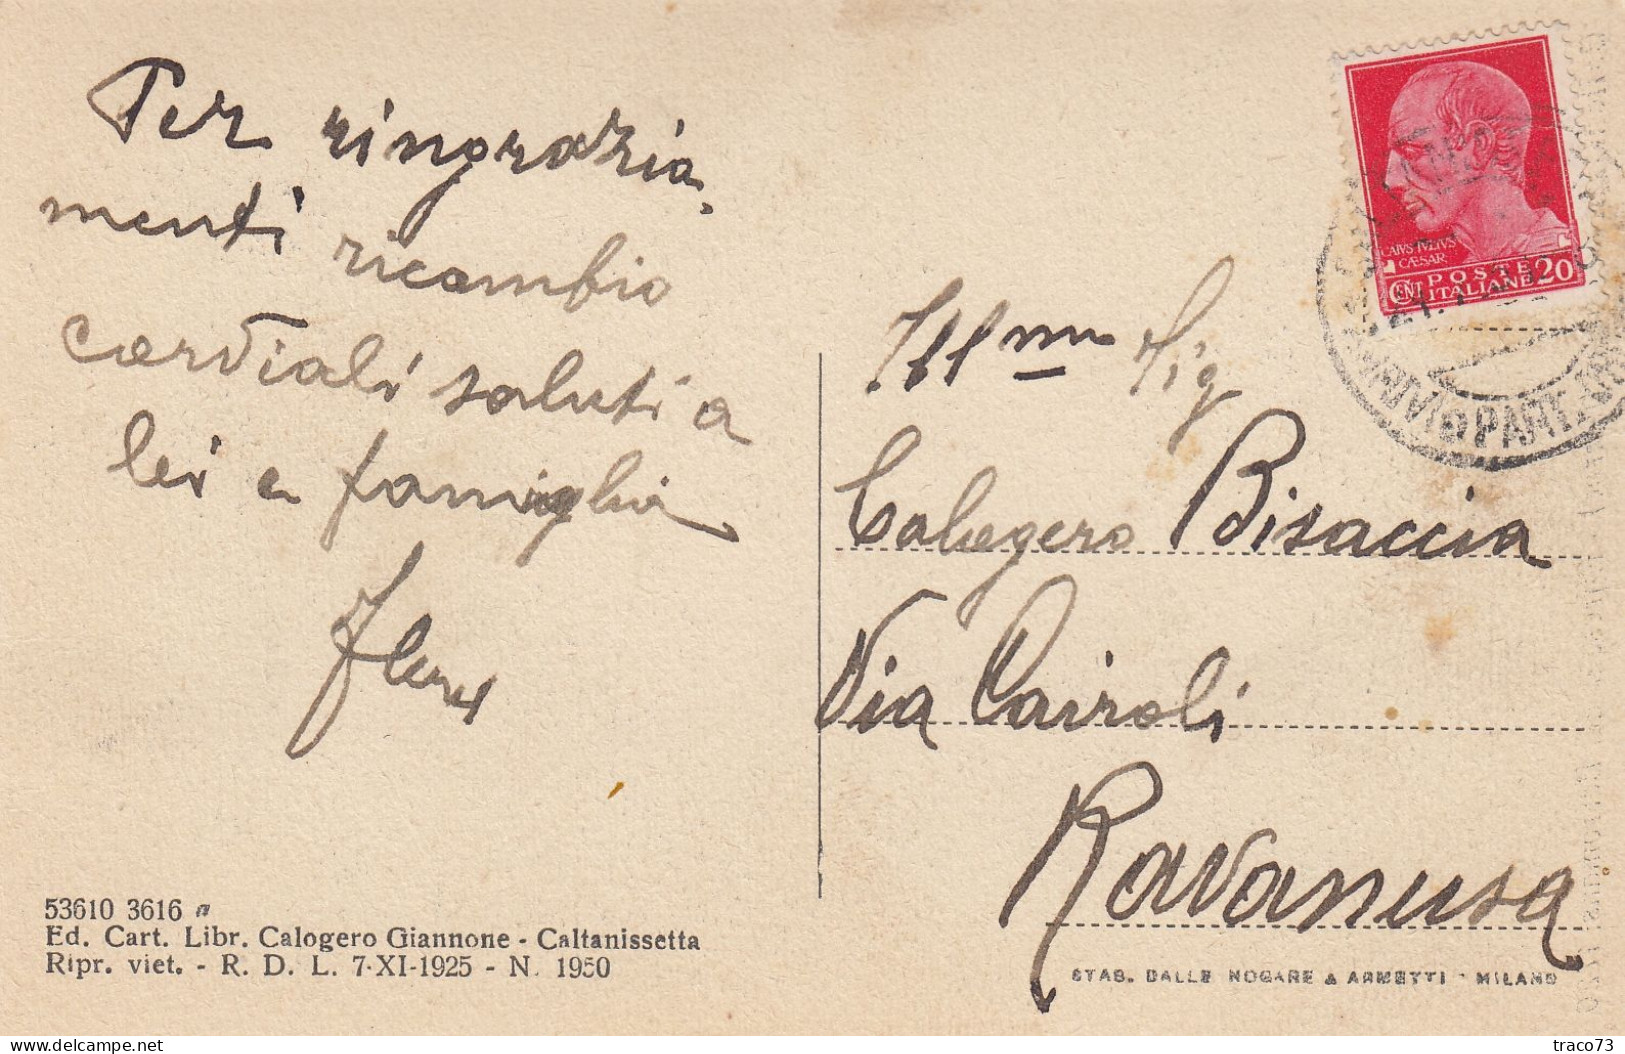 Per ringrazia
menti ricambio
cordiali saluti a
lei e famiglia
53610 3616
Ed. Cart. Libr. Calogero Giannone - Caltanissetta
Ripr. viet. - R. D. L. 7-XI-1925 - N. 1950
CAIVS·IVLIVS
CÆSAR
POSTE
CENT ITALIANE 20
Ill mo Sig
Calogero Bisaccia
Via Cairoli
Ravanusa
STAB. DALLE NOGARE & ARMETTI - MILANO
Delcampe.net
traco73